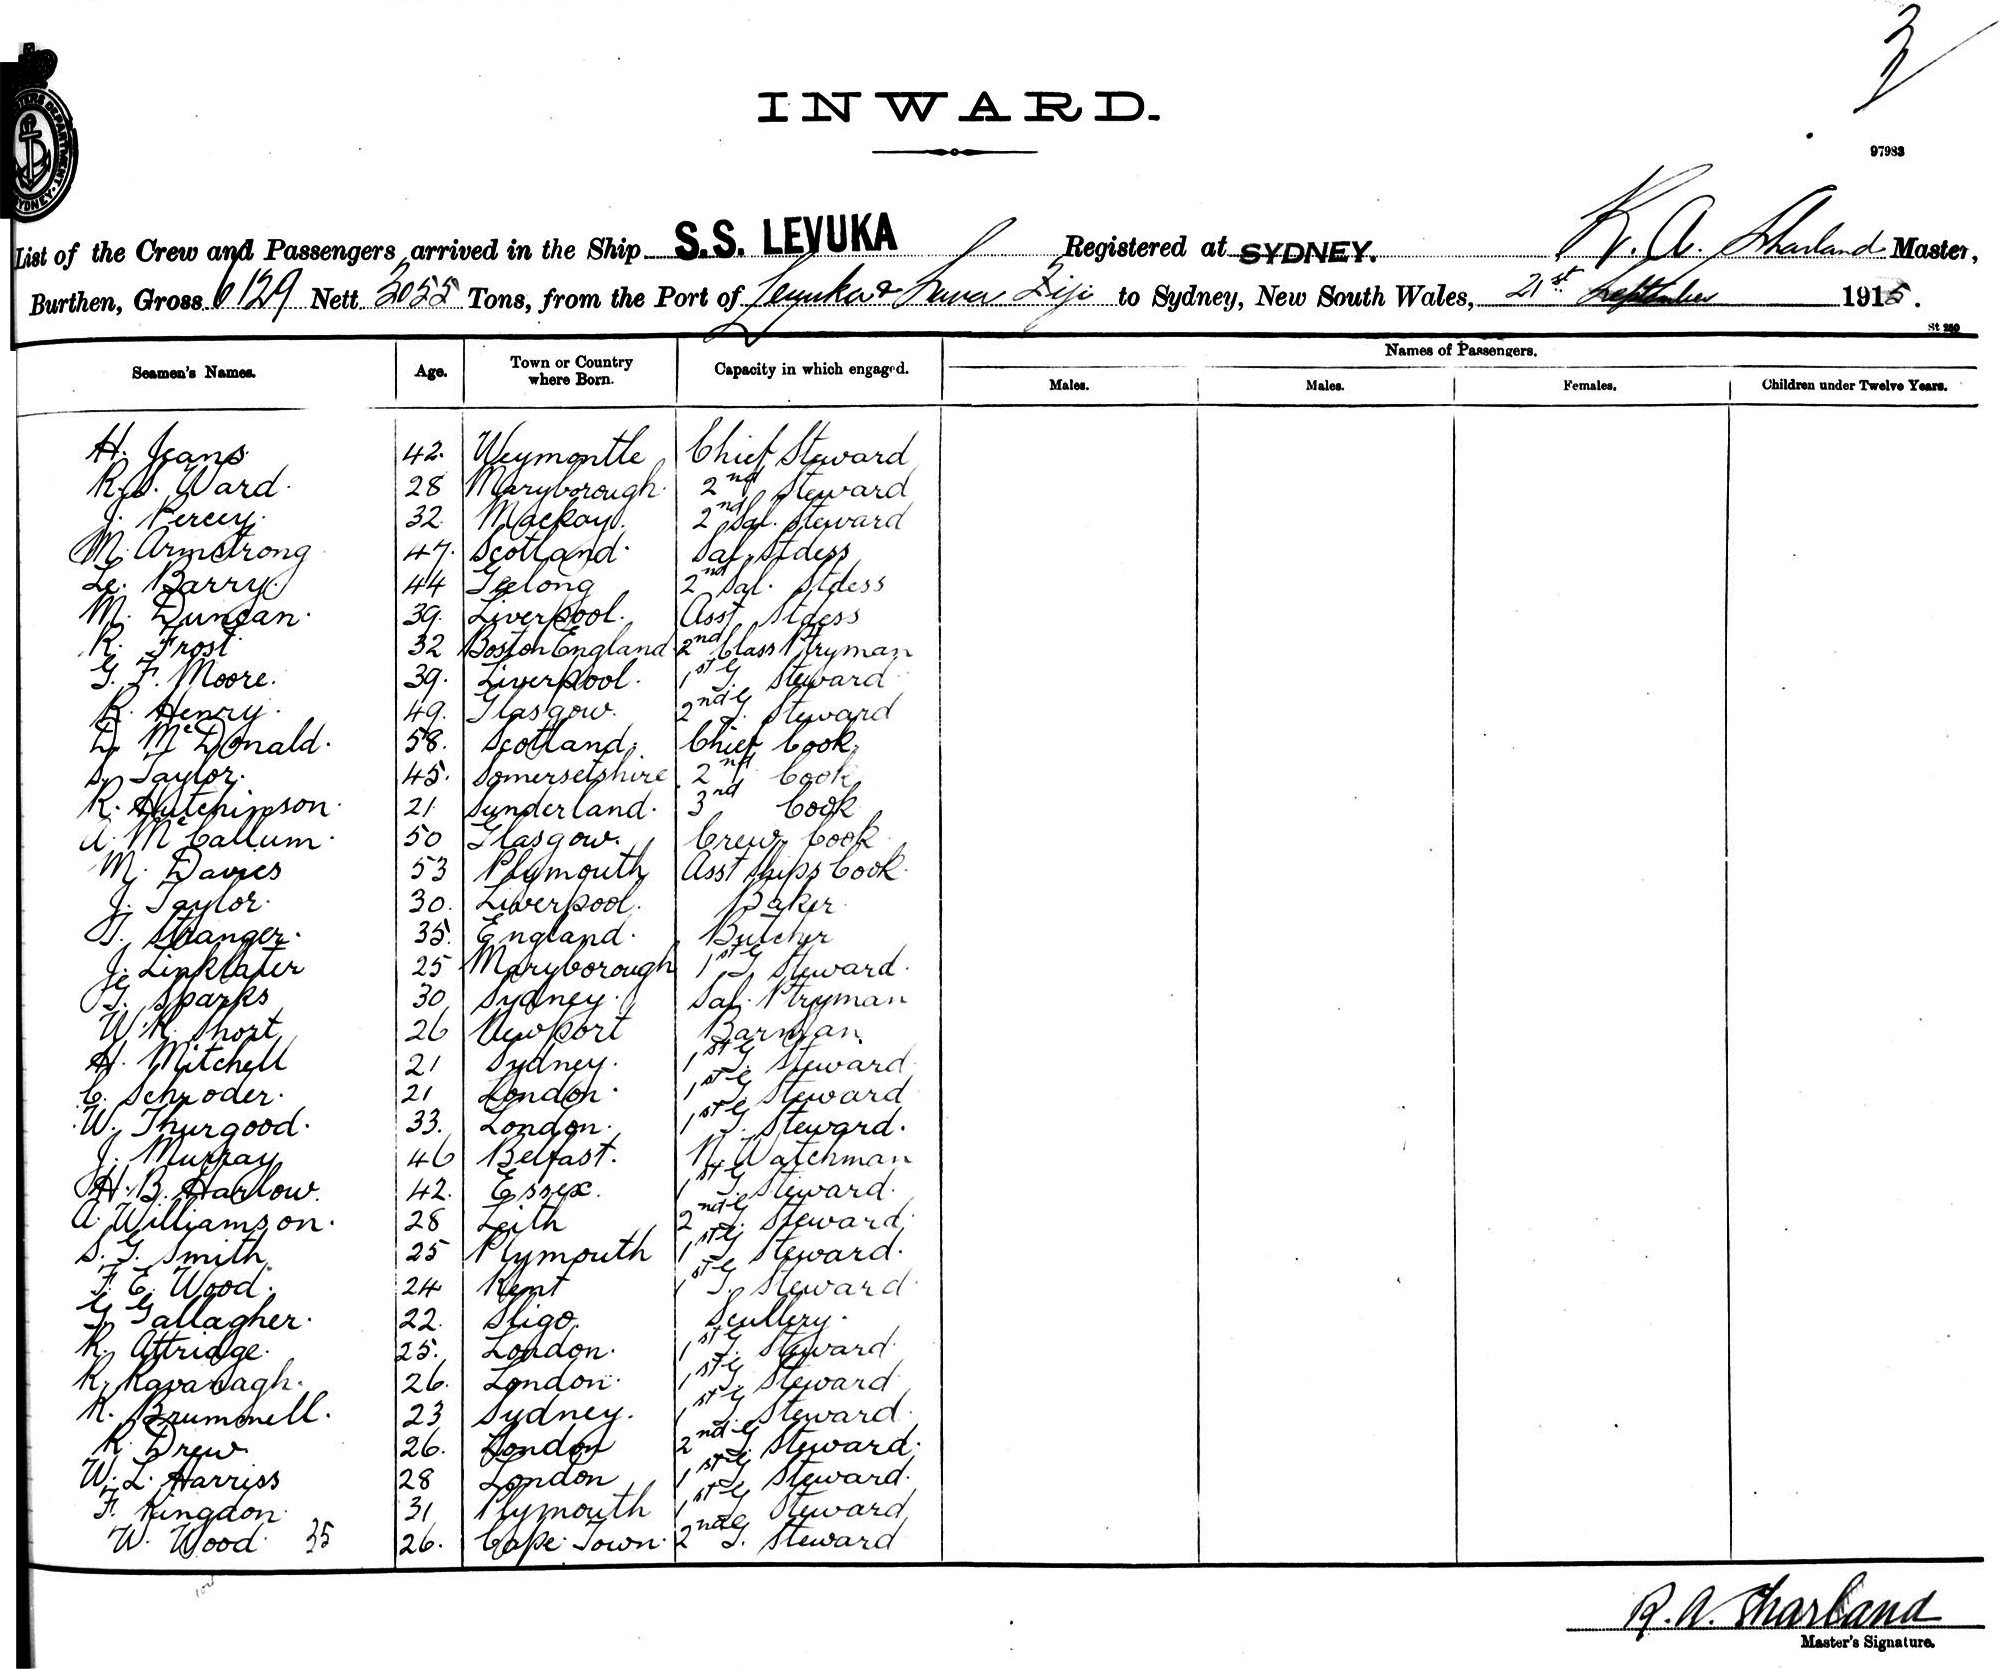 3
INWARD.
97983
DEPARTMENT. SYDNEY.
List of the Crew and Passengers arrived in the Ship S.S. LEVUKA Registered at SYDNEY. R. A. Sharland Master,
Burthen, Gross 6129 Nett 3055 Tons, from the Port of Levuka & Suva Fiji to Sydney, New South Wales, 21st September 1915.
St 250
Seamen's Names. Age. Town or Country where Born. Capacity in which engaged. Names of Passengers.
Males. Males. Females. Children under Twelve Years.
H. Jeans 42. Weymontle Chief Steward
R.S. Ward. 28 Maryborough. 2nd Steward
J. Percey. 32. Mackay. 2nd Sal. Steward
M. Armstrong 47. Scotland. Sal. Stdess
Le. Barry. 44 Geelong 2nd Sal. Stdess
M. Duncan. 39. Liverpool. Asst Stdess
R. Frost 32 Boston England. 2nd Class Ptryman
G. F. Moore. 39. Liverpool. 1st G. Steward
R. Henry. 49. Glasgow. 2nd G. Steward
D. McDonald. 58. Scotland. Chief Cook
S. Taylor. 45. Somersetshire 2nd Cook
R. Hutchinson. 21 Sunderland. 3rd Cook
A. McCallum. 50 Glasgow. Crew Cook
M. Davies 53 Plymouth Asst Ships Cook.
J. Taylor. 30. Liverpool. Baker
T. Stranger. 35. England. Butcher
J. Linklater 25 Maryborough 1st G. Steward.
G. Sparks 30 Sydney. Sal. Ptryman
W. H. Short 26 Newport Barman
H. Mitchell 21 Sydney. 1st G. Steward
C. Schroder. 21 London. 1st G. Steward
W. Thurgood. 33. London. 1st G. Steward.
J. Murray 46 Belfast. N. Watchman
H. B. Harlow. 42. Essex. 1st G. Steward.
A. Williamson. 28 Leith 2nd G. Steward.
S. G. Smith 25 Plymouth 1st G. Steward.
F. E. Wood. 24 Kent 1st G. Steward
G. Gallagher. 22. Sligo. Scullery.
R. Attridge. 25. London. 1st G. Steward
R. Kavanagh. 26. London. 1st G. Steward
R. Brummell. 23 Sydney. 1st G. Steward.
R. Drew. 26. London 2nd G. Steward.
W. L. Harriss 28 London 1st G. Steward.
F. Kingdon. 31 Plymouth 1st G. Steward
W. Wood 35 26. Cape Town. 2nd G. Steward
R. A. Sharland
Master's Signature.